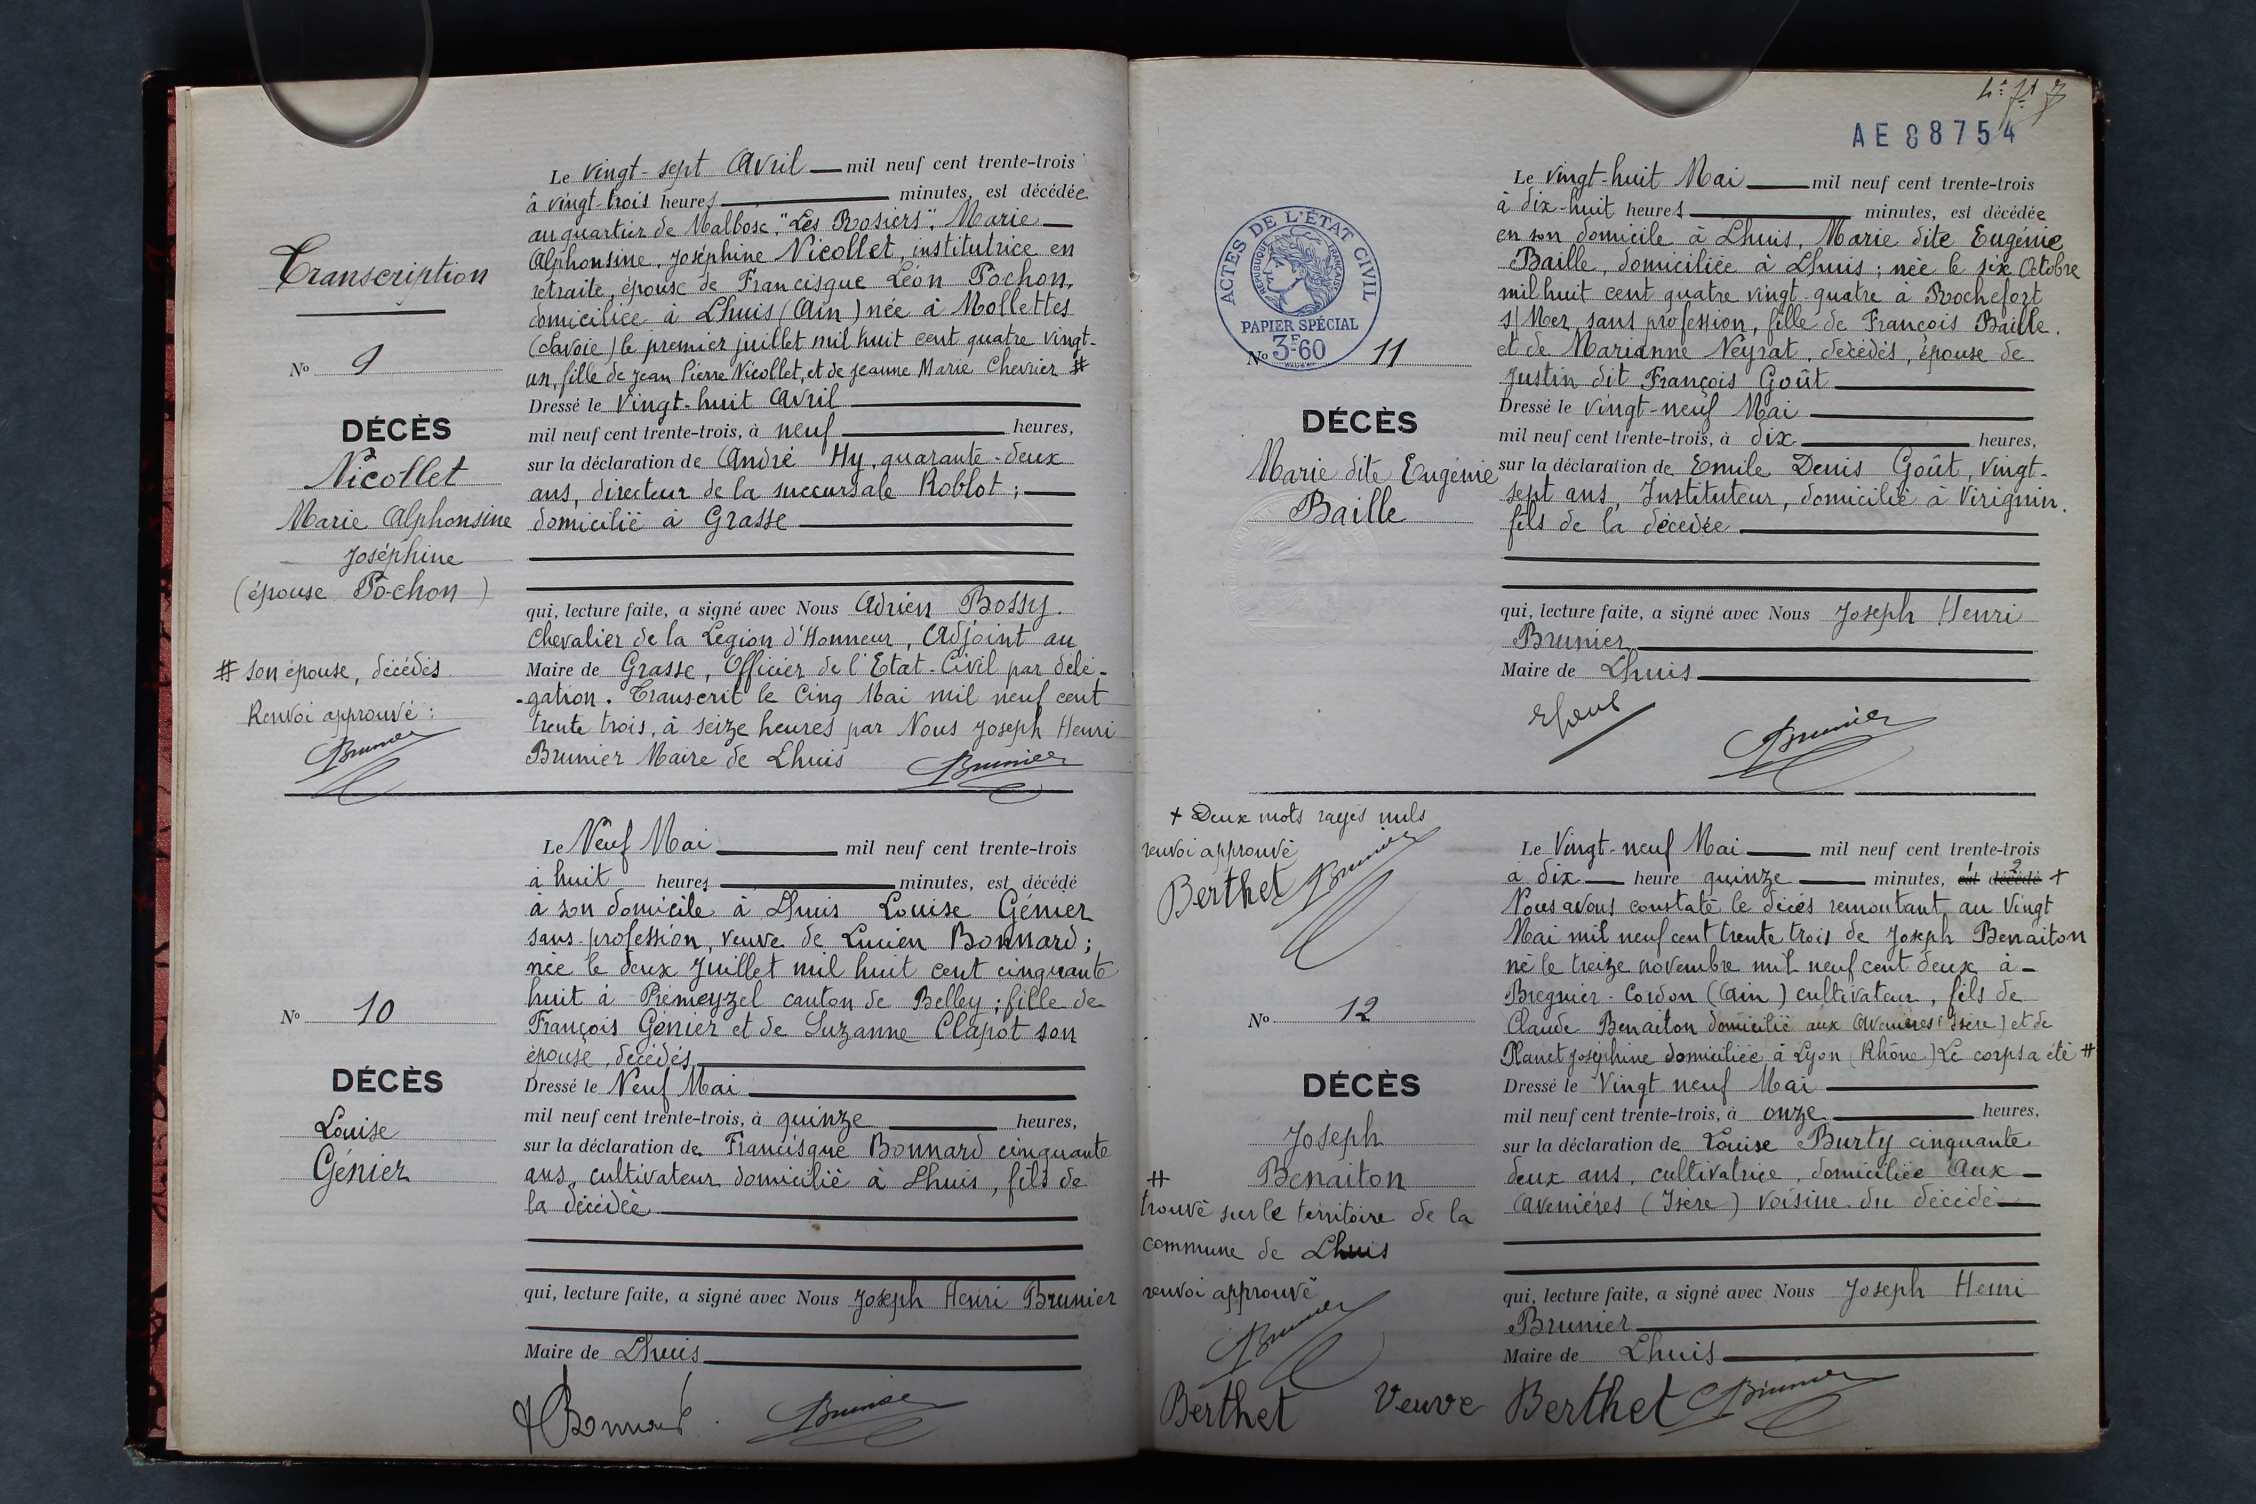 Transcription
No 9
DÉCÈS
Nicollet
Marie Alphonsine
Joséphine
(épouse Pochon)
# son épouse, décédés
Renvoi approuvé :
Brunier
Le vingt-sept Avril mil neuf cent trente-trois
à vingt-trois heures minutes, est décédée
au quartier de Malbosc "Les Rosiers", Marie
Alphonsine, Joséphine Nicollet, institutrice en
retraite, épouse de Francisque Léon Pochon,
domiciliée à Lhuis (Ain) née à Mollettes
(Savoie) le premier juillet mil huit cent quatre vingt-
un, fille de Jean Pierre Nicollet, et de Jeanne Marie Chevrier #
Dressé le vingt-huit Avril
mil neuf cent trente-trois, à neuf heures,
sur la déclaration de André Hy, quarante-deux
ans, directeur de la succursale Roblot ;
domicilié à Grasse
qui, lecture faite, a signé avec Nous Adrien Bossy.
Chevalier de la Légion d'Honneur, Adjoint au
Maire de Grasse, Officier de l'Etat-Civil par délé-
-gation. Transcrit le Cinq Mai mil neuf cent
trente trois, à seize heures par Nous Joseph Henri
Brunier Maire de Lhuis Brunier
No 10
DÉCÈS
Louise
Génier
Le Neuf Mai mil neuf cent trente-trois
à huit heures minutes, est décédé
à son domicile à Lhuis Louise Génier
sans profession, veuve de Lucien Bonnard ;
née le deux Juillet mil huit cent cinquante
huit à Prémeyzel canton de Belley ; fille de
François Génier et de Suzanne Clapot son
épouse, décédés
Dressé le Neuf Mai
mil neuf cent trente-trois, à quinze heures,
sur la déclaration de Francisque Bonnard cinquante
ans, cultivateur domicilié à Lhuis, fils de
la décédée
qui, lecture faite, a signé avec Nous Joseph Henri Brunier
Maire de Lhuis
Bonnard Brunier
AE 88754
ACTES DE L'ÉTAT CIVIL
RÉPUBLIQUE FRANÇAISE
PAPIER SPÉCIAL
3F60
No 11
DÉCÈS
Marie dite Eugénie
Baille
Le vingt-huit Mai mil neuf cent trente-trois
à dix-huit heures minutes, est décédée
en son domicile à Lhuis, Marie dite Eugénie
Baille, domiciliée à Lhuis ; née le six Octobre
mil huit cent quatre vingt quatre à Rochefort
s/Mer, sans profession, fille de François Baille.
et de Marianne Neyrat, décédés, épouse de
Justin dit François Goût
Dressé le vingt-neuf Mai
mil neuf cent trente-trois, à dix heures,
sur la déclaration de Emile Denis Goût, vingt-
sept ans, Instituteur, domicilié à Virignin.
fils de la décédée
qui, lecture faite, a signé avec Nous Joseph Henri
Brunier
Maire de Lhuis
Brunier
+ Deux mots rayés nuls
renvoi approuvé
Berthet Brunier
No 12
DÉCÈS
Joseph
Benaiton
#
trouvé sur le territoire de la
commune de Lhuis
renvoi approuvé
Brunier
Berthet
Le Vingt-neuf Mai mil neuf cent trente-trois
à dix heure quinze minutes, est décédé +
Nous avons constaté le décès remontant au Vingt
Mai mil neuf cent trente trois de Joseph Benaiton
né le treize novembre mil neuf cent deux à
Bregnier-Cordon (Ain) cultivateur, fils de
Claude Benaiton domicilié aux Avenières (Isère) et de
Planet Joséphine domiciliée à Lyon (Rhône) Le corps a été #
Dressé le Vingt neuf Mai
mil neuf cent trente-trois, à onze heures,
sur la déclaration de Louise Burty cinquante
deux ans, cultivatrice, domiciliée Aux
Avenières (Isère) voisine du décédé
qui, lecture faite, a signé avec Nous Joseph Henri
Brunier
Maire de Lhuis
Veuve Berthet Brunier